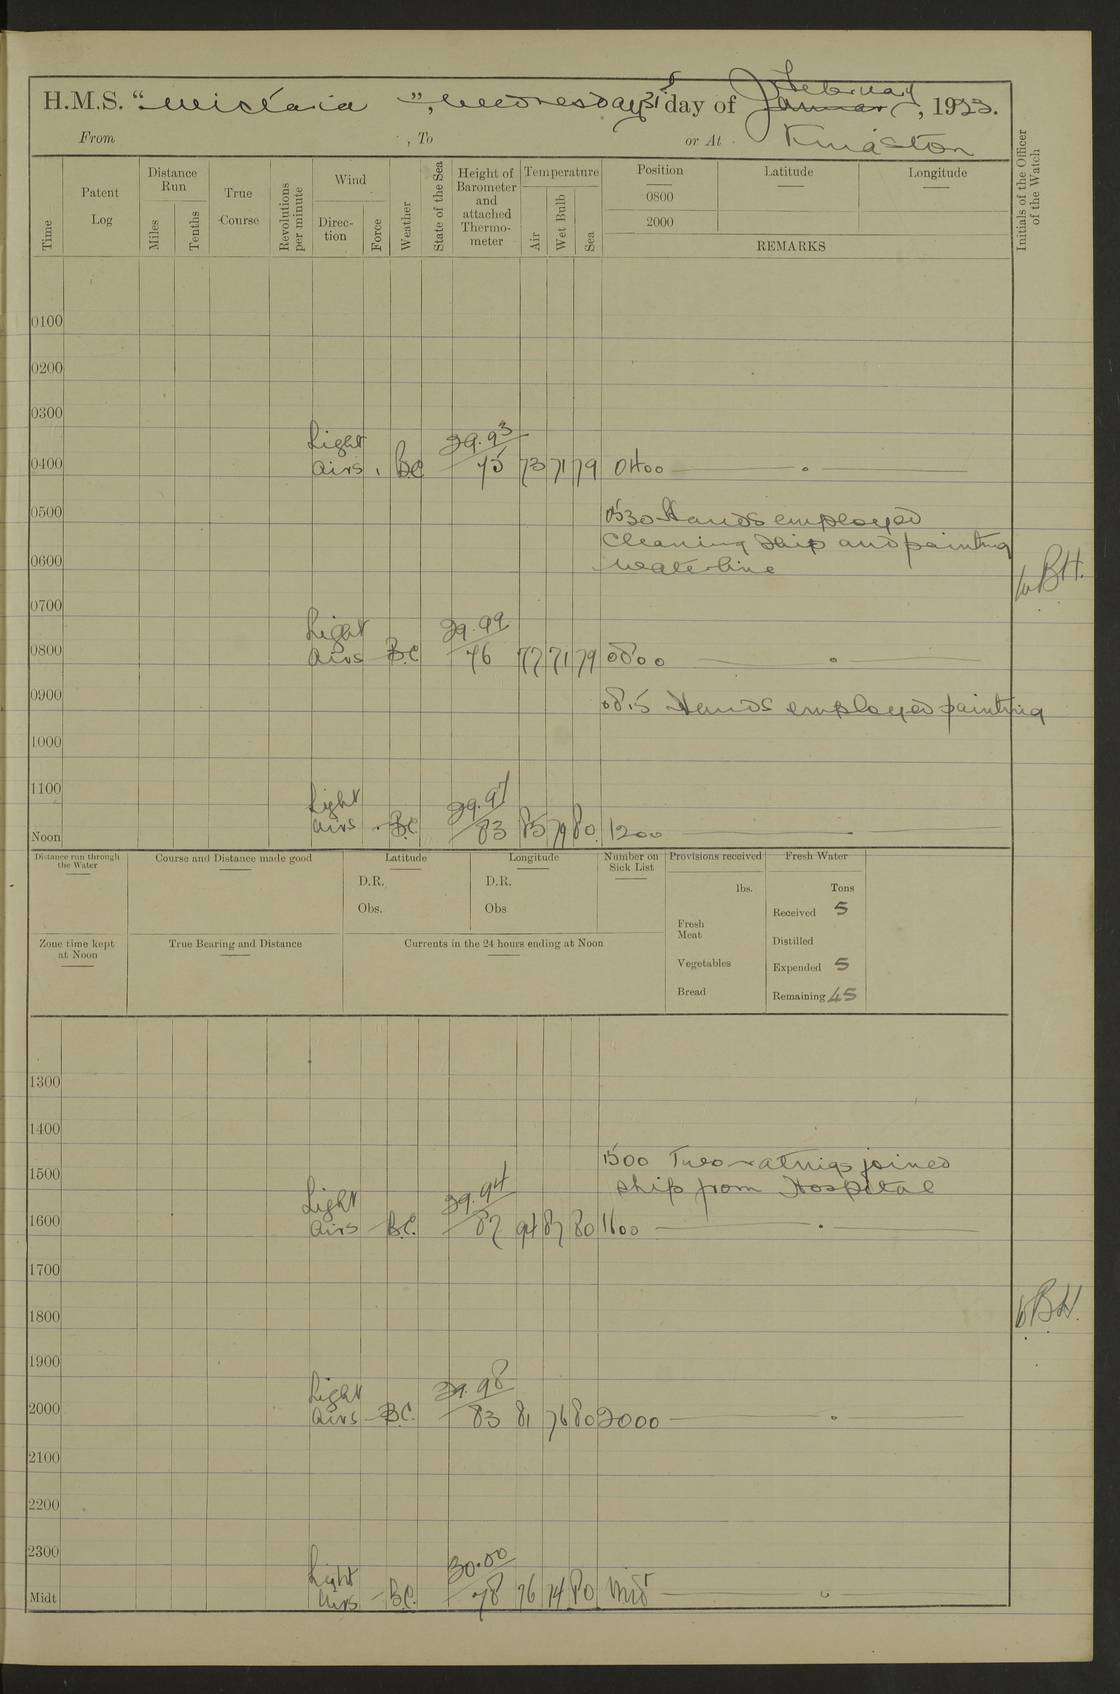 H.M.S. "Wistaria", Wednesday 31st day of January February, 1923.
From , To or At Kingston
Time
Patent Log
Distance Run
Miles
Tenths
True Course
Revolutions per minute
Wind
Direction
Force
Weather
State of the Sea
Height of Barometer and attached Thermometer
Temperature
Air
Wet Bulb
Sea
Position
0800
2000
Latitude
Longitude
REMARKS
Initials of the Officer of the Watch
0100
0200
0300
Light 29.93
0400 airs BC 75 73 71 79 0400
0500 0530 Hands employed
cleaning ship and painting
0600 waterline
WBH.
0700
Light 29.99
0800 airs BC 76 77 71 79 0800
0900 0815 Hands employed painting
1000
1100
Light 29.97
Noon airs BC 83 85 79 80 1200
Distance run through the Water
Course and Distance made good
Latitude
D.R.
Obs.
Longitude
D.R.
Obs
Number on Sick List
Provisions received
lbs.
Fresh Meat
Vegetables
Bread
Fresh Water
Tons
Received 5
Distilled
Expended 5
Remaining 45
Zone time kept at Noon
True Bearing and Distance
Currents in the 24 hours ending at Noon
1300
1400
1500 1500 Two ratings joined
ship from Hospital
Light 29.94
1600 airs B.C. 87 94 87 80 1600
1700
1800
WBH.
1900
Light 29.98
2000 airs B.C. 83 81 76 80 2000
2100
2200
2300
Light 30.00
Midt airs B.C. 78 76 74 80 Midt